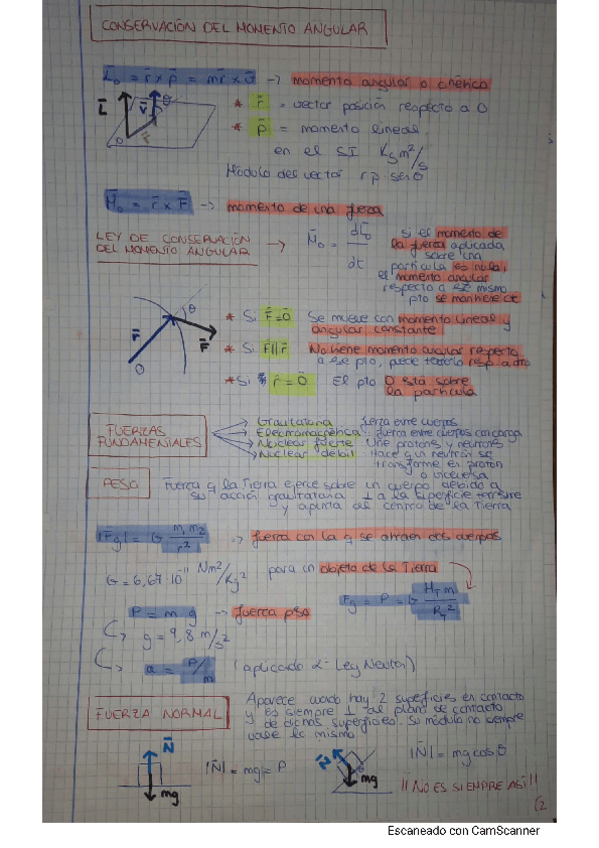 CONSERVACIÓN DEL MOMENTO ANGULAR
L̄₀ = r̄ x p̄ = m r̄ x v̄ -> momento angular o cinético
* r̄ = vector posición respecto a O
* p̄ = momento lineal
en el SI Kg m²/s
Módulo del vector r p senθ
L̄ v̄ θ r̄ O
M̄₀ = r̄ x F̄ -> momento de una fuerza
LEY DE CONSERVACIÓN
DEL MOMENTO ANGULAR
-> M̄₀ = dL̄₀/dt
si el momento de
la fuerza aplicada
sobre una
partícula es nula,
el momento angular
respecto a ese mismo
pto se mantiene ct
r̄ θ F̄ O
* Si F̄=0̄ Se mueve con momento lineal y
angular constante
* Si F̄||r̄ No tiene momento angular respecto
a ese pto, puede tenerlo resp a otro
* Si r̄ = 0̄ El pto O está sobre
la partícula
FUERZAS
FUNDAMENTALES
Gravitatoria fuerza entre cuerpos
Electromagnética fuerza entre cuerpos con carga
Nuclear fuerte Une protones y neutrones
Nuclear débil Hace q un neutrón se
transforme en protón
o viceversa
PESO
Fuerza q la Tierra ejerce sobre un cuerpo debido a
su acción gravitatoria ⊥ a la superficie terrestre
y apunta al centro de la Tierra
|F̄g| = G m₁m₂/r² -> fuerza con la q se atraen dos cuerpos
G = 6,67·10⁻¹¹ Nm²/Kg² para un objeto de la Tierra
Fg = P = G M_T m/R_T²
P = m g -> fuerza peso
g = 9,8 m/s²
a = P/m (aplicando 2ª Ley Newton)
FUERZA NORMAL
Aparece cuando hay 2 superficies en contacto
y es siempre ⊥ al plano de contacto
de dichas superficies. Su módulo no siempre
vale lo mismo
N̄ mg
|N̄| = mg = P
N̄ θ mg
|N̄| = mg cos θ
!! NO ES SIEMPRE ASÍ !!
2
Escaneado con CamScanner